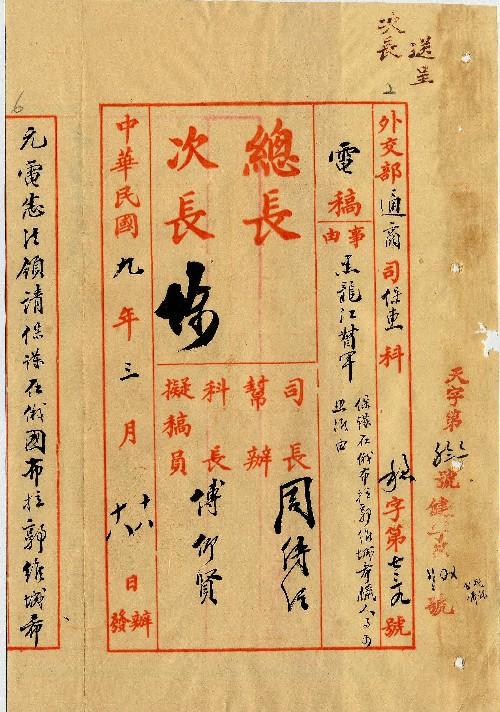 送呈
次長
外交部通商司保惠科
字第七三九號
天字第
號
電稿
事由
黑龍江督軍
保護在俄布拉郭維城希臘人事
總長
次長
司長周傳經
幫辦
科長傅仰賢
擬稿員
中華民國九年三月十八日
十八
辦發
元電悉法領請保護在俄國布拉郭維城希
6
2